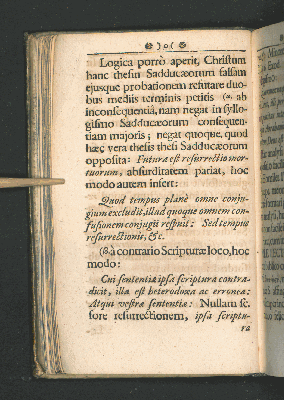 Logica porrò aperit, Christum
hanc thesin Sadducæorum falsam
ejusque probationem refutare duo-
bus mediis terminis petitis (a. ab
inconsequentia, nam negat in syllo-
gismo Sadducæorum consequen-
tiam majoris; negat quoque, quod
hæc vera thesis thesi Sadducæorum
opposita: Futura est resurrectio mor-
tuorum, absurditatem pariat, hoc
modo autem infert:
Quod tempus planè omne conju-
gium excludit, illud quoque omnem con-
fusionem conjugii respuit: Sed tempus
resurrectionis, &c.
à contrario Scripturæ loco, hoc
modo:
Cui sententiæ ipsa scriptura contra-
dicit, illa est heterodoxa ac erronea:
Atqui vestræ sententiæ: Nullam fe.
fore resurrectionem, ipsa scriptu-
ra